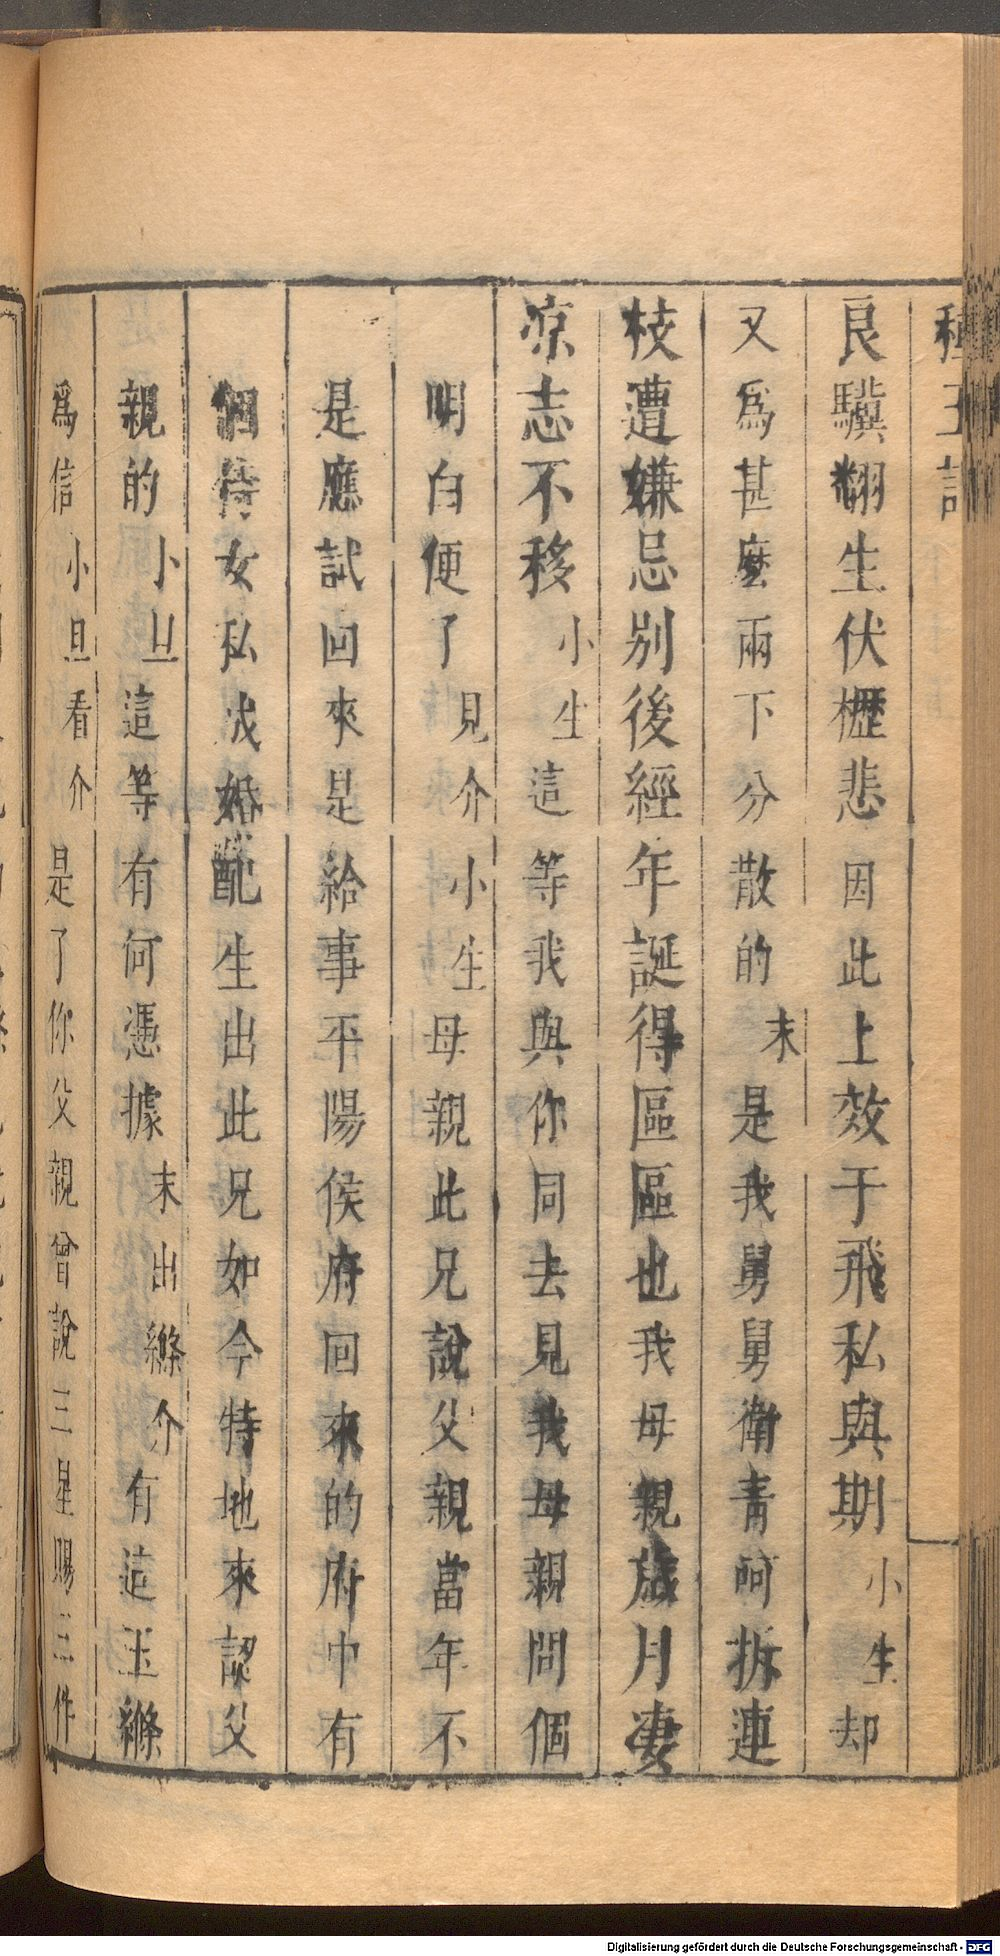 種玉記
良驥翻生伏櫪悲因此上效于飛私與期小生却
又爲甚麼兩下分散的末是我舅舅衛青呵拆連
枝遭嫌忌別後經年誕得區區也我母親歲月凄
凉志不移小生這等我與你同去見我母親問個
明白便了見介小生母親此兄說父親當年不
是應試回來是給事平陽侯府回來的府中有
個侍女私成婚配生出此兄如今特地來認父
親的小旦這等有何憑據末出縧介有這玉縧
爲信小旦看介是了你父親曾說三星賜三件
Digitalisierung gefördert durch die Deutsche Forschungsgemeinschaft - DFG